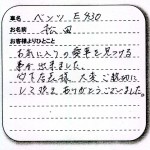 車名 ベンツ E430
お名前 松田
お客様よりひとこと
お気に入りの愛車を見つける
事が出来ました。
店長様、大変ご親切に
して頂き ありがとうございました。